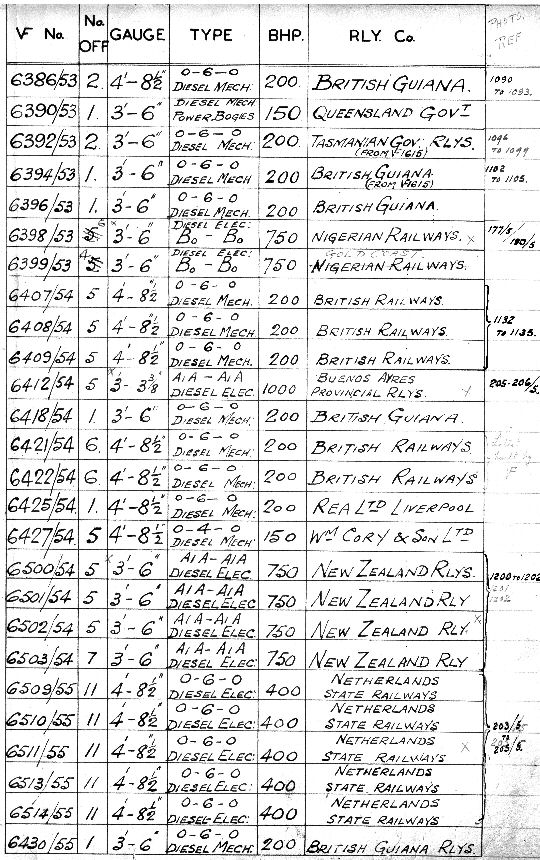 VF No. No. OFF GAUGE TYPE BHP. RLY. Co. PHOTO. REF
6386/53 2. 4'-8½" 0-6-0 DIESEL MECH. 200. BRITISH GUIANA. 1090 TO 1093.
6390/53 1. 3'-6" DIESEL MECH POWER BOGIES 150 QUEENSLAND GOVT
6392/53 2. 3'-6" 0-6-0 DIESEL MECH. 200. TASMANIAN GOV. RLYS. (FROM V1615) 1096 TO 1099
6394/53 1. 3'-6" 0-6-0 DIESEL MECH. 200 BRITISH GUIANA (FROM V1615) 1102 TO 1105.
6396/53 1. 3'-6" 0-6-0 DIESEL MECH. 200 BRITISH GUIANA.
6398/53 6 3'-6" DIESEL ELEC. Bo - Bo 750 NIGERIAN RAILWAYS. x 177/5/ 180/5
6399/53 4 3'-6" DIESEL ELEC: Bo - Bo 750 GOLD COAST NIGERIAN RAILWAYS.
6407/54 5 4'-8½" 0-6-0 DIESEL MECH. 200 BRITISH RAILWAYS.
6408/54 5 4'-8½" 0-6-0 DIESEL MECH. 200 BRITISH RAILWAYS. 1132 TO 1135.
6409/54 5 4'-8½" 0-6-0 DIESEL MECH. 200 BRITISH RAILWAYS.
6412/54 5 x 3'-3⅜" A1A - A1A DIESEL ELEC. 1000 BUENOS AYRES PROVINCIAL RLYS. x 205-206/5.
6418/54 1. 3'-6" 0-6-0 DIESEL MECH: 200 BRITISH GUIANA.
6421/54 6. 4'-8½" 0-6-0 DIESEL MECH: 200 BRITISH RAILWAYS
6422/54 6. 4'-8½" 0-6-0 DIESEL MECH: 200 BRITISH RAILWAYS F
6425/54 1. 4'-8½" 0-6-0 DIESEL MECH: 200 REA LTD LIVERPOOL
6427/54 5 4'-8½" 0-4-0 DIESEL MECH: 150 WM CORY & SON LTD
6500/54 5 x 3'-6" A1A - A1A DIESEL ELEC. 750 NEW ZEALAND RLYS. 1200 TO 1202
6501/54 5 3'-6" A1A - A1A DIESEL ELEC 750 NEW ZEALAND RLY
6502/54 5 3'-6" A1A - A1A DIESEL ELEC: 750 NEW ZEALAND RLY. x
6503/54 7 3'-6" A1A - A1A DIESEL ELEC: 750 NEW ZEALAND RLY
6509/55 11 4'-8½" 0-6-0 DIESEL ELEC: 400 NETHERLANDS STATE RAILWAYS
6510/55 11 4'-8½" 0-6-0 DIESEL ELEC: 400 NETHERLANDS STATE RAILWAYS 203/5
6511/55 11 4'-8½" 0-6-0 DIESEL ELEC: 400 NETHERLANDS STATE RAILWAYS x TO 205/5.
6513/55 11 4'-8½" 0-6-0 DIESEL ELEC: 400 NETHERLANDS STATE RAILWAYS
6514/55 11 4'-8½" 0-6-0 DIESEL ELEC: 400 NETHERLANDS STATE RAILWAYS
6430/55 1 3'-6" 0-6-0 DIESEL MECH: 200 BRITISH GUIANA RLYS.